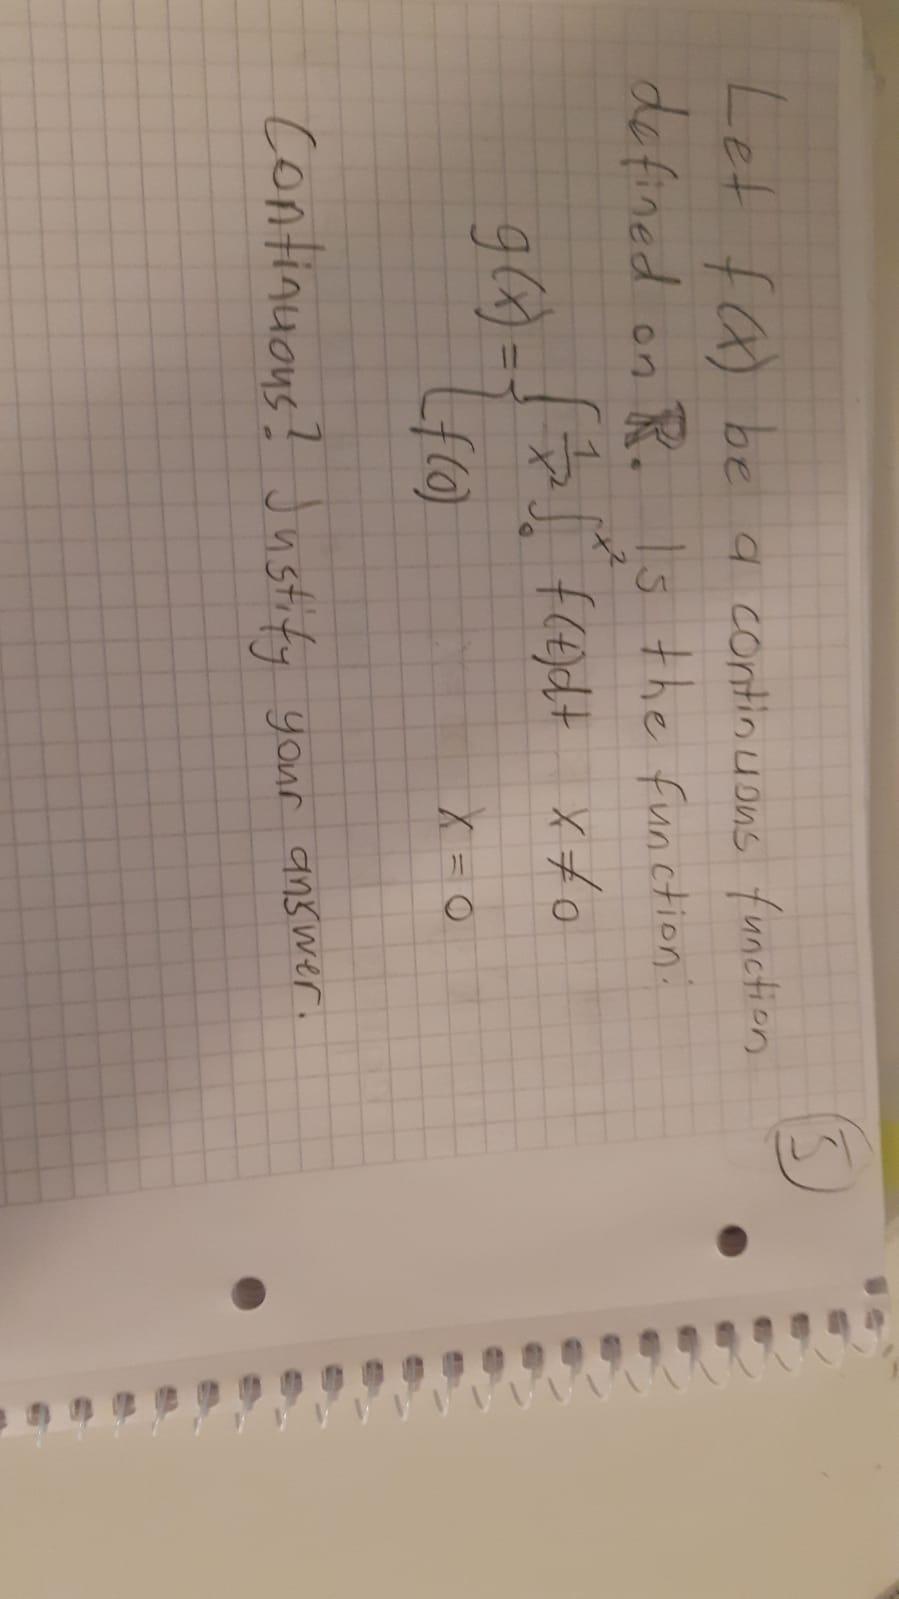 5
Let f(x) be a continuous function
defined on ℝ. Is the function:
g(x) = { 1/x² ∫₀^x² f(t)dt x ≠ 0
f(0) x = 0
Continuous? Justify your answer.